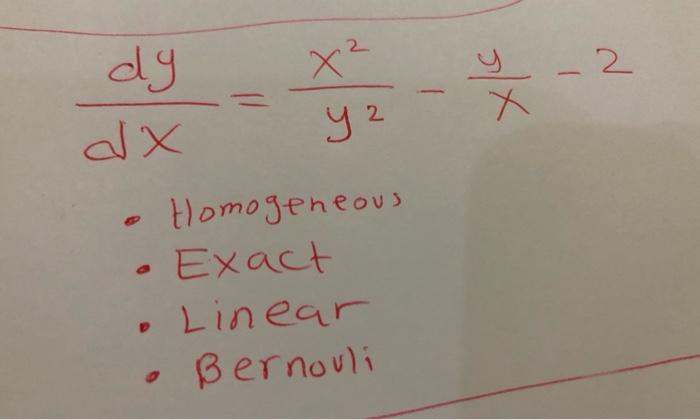 dy/dx = x²/y² - y/x - 2
• Homogeneous
• Exact
• Linear
• Bernouli